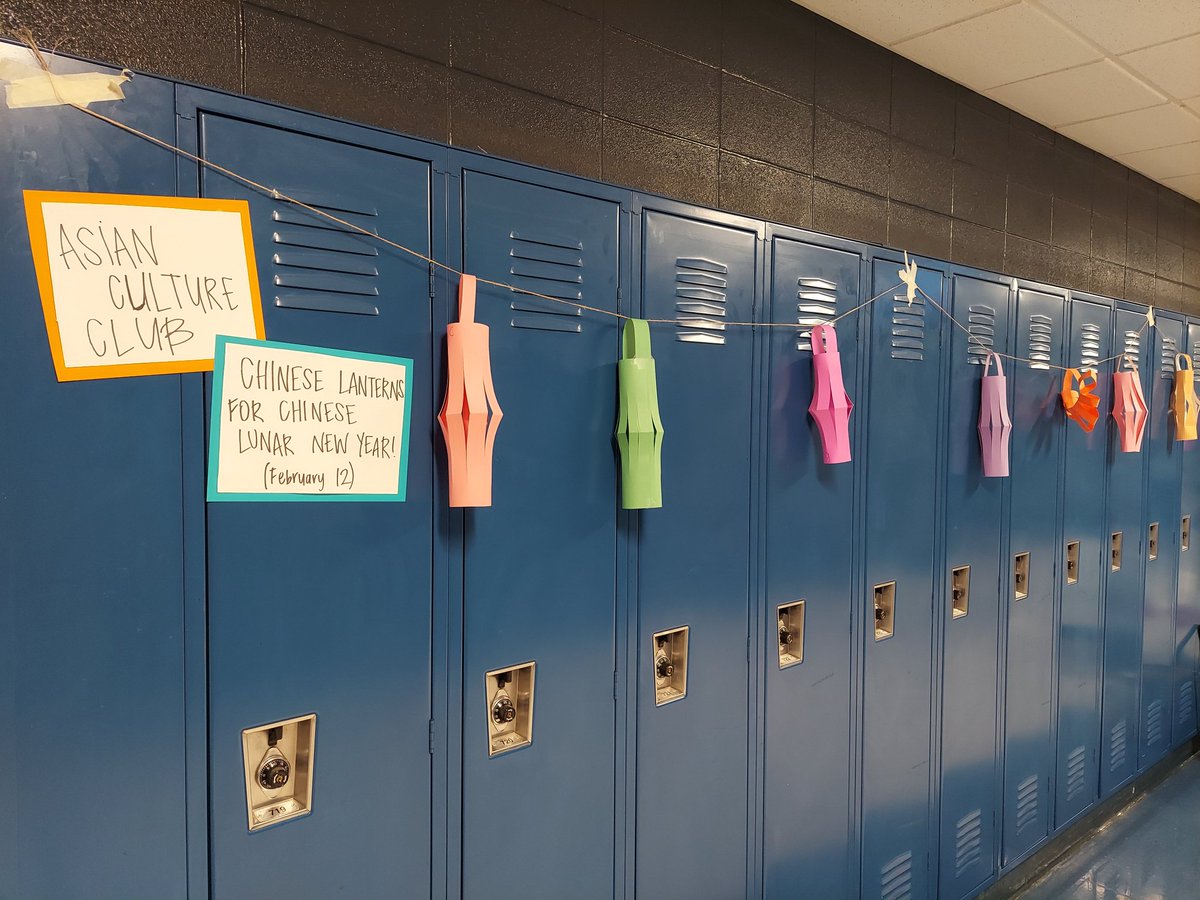 ASiAN
CULTURE
CLUB
CHINESE LANTERNS
FOR CHINESE
LUNAR NEW YEAR!
(February 12)
719